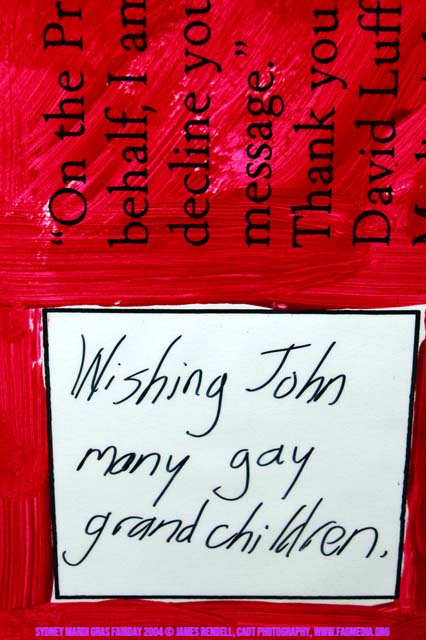 “On the Pr
behalf, I am
decline you
message.”
Thank you.
David Luff
Wishing John
many gay
grandchildren.
SYDNEY MARDI GRAS FAIRDAY 2004 © JAMES RENDELL, CADT PHOTOGRAPHY, WWW.FAGMEDIA.ORG